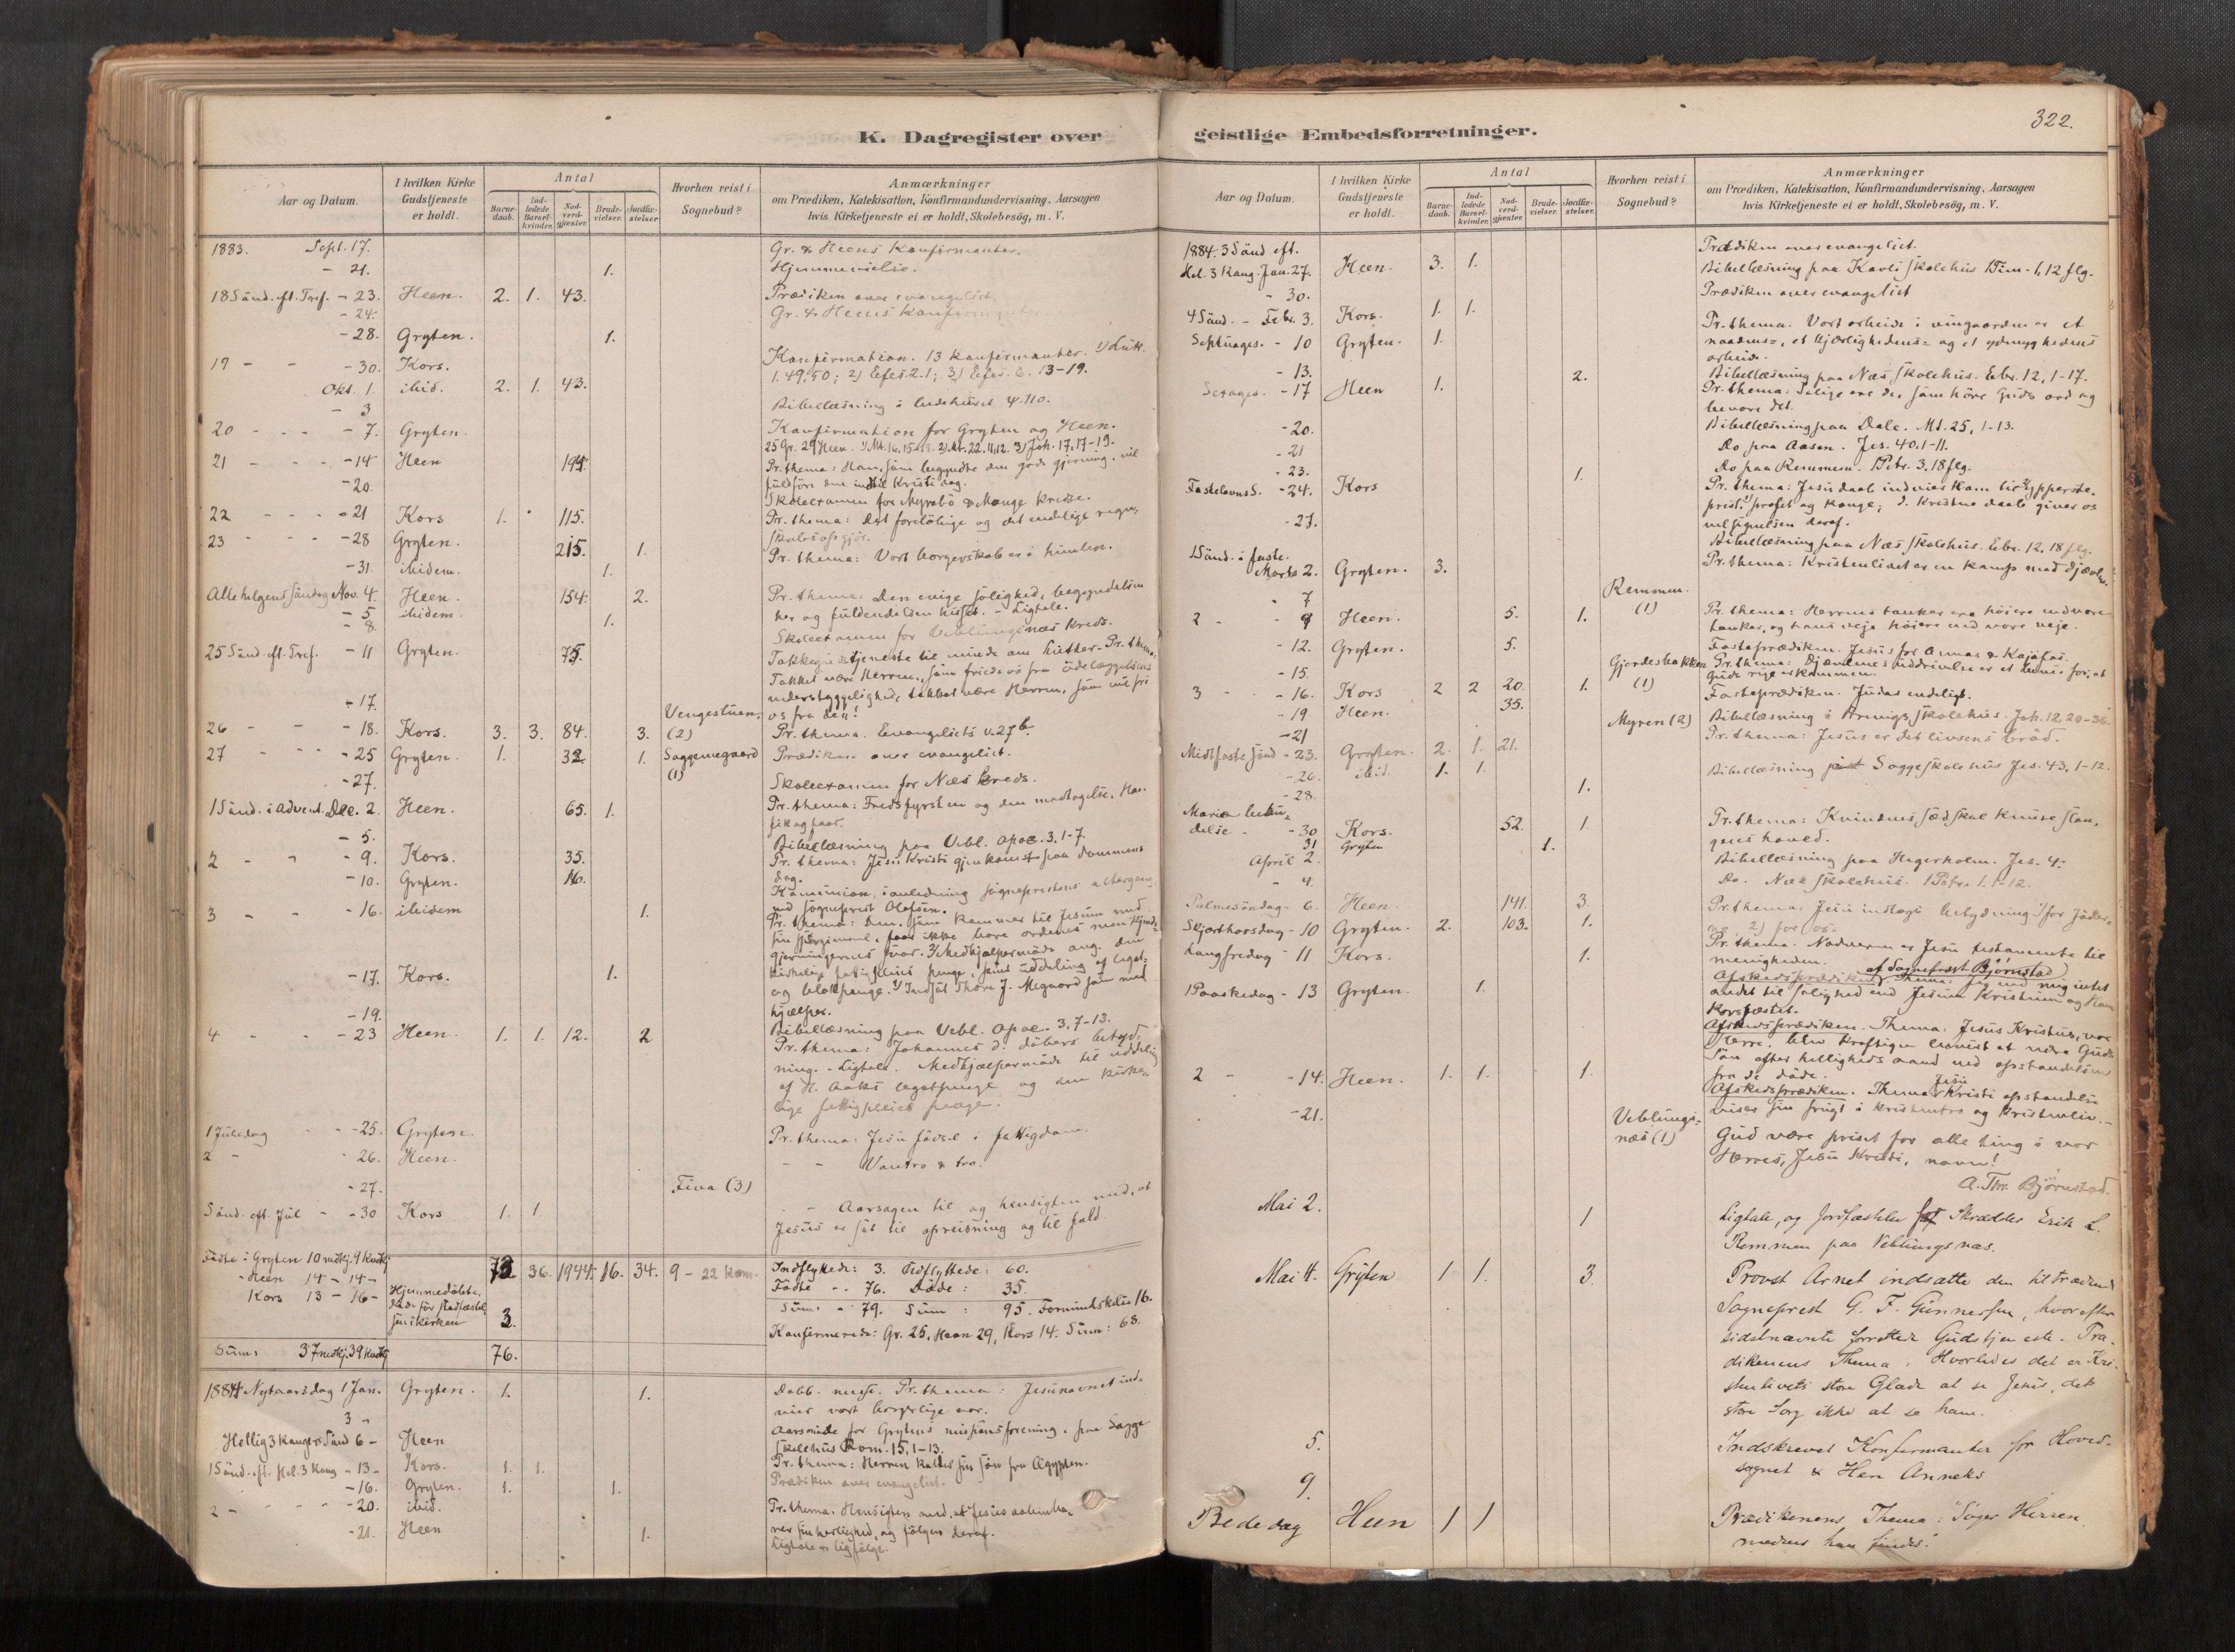 K. Dagregister over
Aar og Datum.
I hvilken Kirke Gudstjeneste er holdt.
Antal
Barne-daab.
Ind-ledede Barsel-kvinder.
Nad-verd-gjester.
Brude-vielser.
Jordfæ-stelser.
Hvorhen reist i Sognebud?
Anmærkninger
om Prædiken, Katekisation, Konfirmandundervisning, Aarsagen
hvis Kirketjeneste ei er holdt, Skolebesög, m. V.
1883. Sept. 17. Gr. & Heens Konfirmanter.
- 21. 1. Hjemmevielse.
18 Sönd. eft. Tref. - 23. Heen. 2. 1. 43. Prædiken over evangeliet.
- 24. Gr. & Heens
- 28. Gryten. 1.
19 - - - 30. Kors. Konfirmation. 13 konfirmanter. 1) Luk.
1.49,50; 2) Efes. 2.1; 3) Efes. 6. 13-19.
Okt. 1. ibid. 2. 1. 43.
- 3 Bibellæsning i bedehuset ψ.110.
20 - - - 7. Gryten. Konfirmation for Gryten og Heen.
25 Gr. 29 Heen. 3) Joh. 17, 17-19.
21 - - - 14 Heen 194. Pr. thema: Han, som begyndte den gode gjerning, vil
fuldföre den indtil Kristi dag.
- 20. Skoleexamen for Myrabö & Monge kredse.
22 - - - 21 Kors 1. 115. Pr. thema: Det forelöbige og det endelige regn-
skabsopgjör.
23 - - - 28 Gryten. 215. 1. Pr. thema: Vort borgerskab er i himlen.
- 31. ibidem. 1.
Alle helgens söndag Nov. 4. Heen. 154. 2. Pr. thema: Den evige salighed, begyndelsen
her og fuldendelsen hisset. - Ligtale.
- 5 ibidem. 1.
- 8. Skoleexamen for Veblungsnæs kreds.
25 Sönd. eft. Tref. - 11 Gryten. 75. Takkegudstjeneste til minde om Luther. - Pr. thema:
Takket være Herren, som friede os fra ödelæggelsens
vederstyggelighed, takket være Herren, som vil fri
os fra den!
- 17. Vengestuen. (2)
26 - - - 18. Kors. 3. 3. 84. 3. Pr. thema. Evangeliets v. 27 b.
27 - - - 25 Gryten. 1. 32. 1. Soggemegaard (1) Prædiken over evangeliet.
- 27. Skoleexamen for Næs kreds.
1 Sönd. i Advent. Dec. 2. Heen. 65. 1. Pr. thema: Fredsfyrsten og den modtagelse, Han
fik og faar.
- 5. Bibellæsning paa Vebl. Apoc. 3, 1-7.
2 - - - 9. Kors. 35. Pr. thema: Jesu Kristi gjenkomst paa dommens
dag.
- 10. Gryten. 16. Kommunion, i anledning sogneprestens altergang,
ved sogneprest Olafsen.
3 - - - 16. ibidem 1. Pr. thema: Den, som kommer til Jesum med
sin spörgsmaal, faar ikke bare ordenes men
gjerningernes svar.
- 17. Kors. 1.
hjælper.
- 19. Bibellæsning paa Vebl. Apoc. 3, 7-13.
4 - - - 23 Heen. 1. 1. 12. 2 Pr. thema: Johannes d. döbers betyd-
ning. - Ligtale. Medhjælpermöde til uddeling
af H. Aaks legatpenge og den kirke-
lige fattigpleies penge.
1 Juledag - - 25. Gryten. Pr. thema: Jesu födsel i fattigdom.
2 - - 26. Heen. - - Vantro & tro.
- 27. Fiva (3)
Sönd. eft. Jul - - 30 Kors 1. 1. - - Aarsagen til og hensigten med, at
Jesus er sat til opreisning og til fald.
Födte i Gryten 10 mdkj. 9 kvdkj
- Heen 14 - 14 -
Kors 13 - 16 -
73. 36. 1944. 16. 34. 9 - 22 kom.
Hjemmedöbte, döde för stadfæstelsen i kirken 3.
Indflyttede: 3. Udflyttede: 60.
Födte - - 76. Döde: 35.
Sum: - - 79. Sum: 95.
Konfirmerede: Gr. 25, Heen 29, Kors 14. Sum: 68.
Sum: 37 mdkj. 39 kvdkj 76.
1884 Nytaarsdag 1 Jan. Gryten. 1. 1. Dobb. messe. Pr. thema: Jesunavnet ind-
vier vort borgerlige aar.
3 - Aarsmöde for Grytens missionsforening, paa Sogge
skolehus Rom. 15, 1-13.
Hellig 3 kongers Sönd 6 - Heen
1 Sönd. eft. Hel. 3 Kong - 13 - Kors. 1. 1. Pr. thema: Herren kalder sin sön fra Ægypten.
- 16. Gryten. 1. 1. Prædiken over evangeliet.
2 - - - - 20. ibid. Pr. thema: Hensigten med, at Jesus aabenba-
rer sin herlighed, og fölgen deraf.
- 21. Heen 1. Ligtale & ligfölge.
geistlige Embedsforretninger.
322.
Aar og Datum.
I hvilken Kirke Gudstjeneste er holdt.
Antal
Barne-daab.
Ind-ledede Barsel-kvinder.
Nad-verd-gjester.
Brude-vielser.
Jordfæ-stelser.
Hvorhen reist i Sognebud?
Anmærkninger
om Prædiken, Katekisation, Konfirmandundervisning, Aarsagen
hvis Kirketjeneste ei er holdt, Skolebesög, m. V.
1884. 3 Sönd eft.
Hel. 3 Kong. Jan. 27. Heen. 3. 1. Prædiken over evangeliet.
- 30. Bibellæsning paa Kavli skolehus 1 Tim. 1, 12 flg.
4 Sönd. - Febr. 3. Kors. 1. 1. Prædiken over evangeliet
Septuages. - 10 Gryten. 1. Pr. thema. Vort arbeide i vingaarden er et
naadens-, et kjærlighedens- og et ydmyghedens
arbeide.
- 13. 2. Bibellæsning paa Næs skolehus. Ebr. 12, 1-17.
Sexages. - 17 Heen 1. Pr. thema: Salige ere de, som höre Guds ord og
bevare det.
- 20. Bibellæsning paa Dale. Mt. 25, 1-13.
- 21 Do paa Aasen. Jes. 40, 1-11.
- 23. 1. Do paa Remmem. 1 Petr. 3, 18 flg.
Fastelavns S. - 24. Kors Pr. thema: Jesu daab indvier Ham til ypperste-
prest, profet og konge; d. Kristne daab giver os
velsignelsen deraf.
- 27. Bibellæsning paa Næs skolehus. Ebr. 12, 18 flg.
1 Sönd. i faste. Marts 2. Gryten. 3. Pr. thema: Kristenlivet er en kamp mod djævelen.
- 7 Remmem. (1)
2 - - 9 Heen. 5. 1. Pr. thema: Herrens tanker ere höiere end vore
tanker, og hans veje höiere end vore veje.
- 12. Gryten. 5. Fasteprædiken. Jesus for Annas & Kajafas.
- 15. Gjerdesbakken (1)
3 - - - 16. Kors 2 2 20. 1. Pr. thema: Djævlenes uddrivelse er et bevis for, at
Guds rige er kommen.
- 19 Heen. 35. Fasteprædiken. Judas endeligt.
- 21 Myren (2) Bibellæsning i skolehus. Joh. 12, 20-36.
Midtfaste sönd - 23. Gryten. 2. 1. 21. Pr. thema: Jesus er det livsens bröd.
- 26. ibid. 1. 1. Bibellæsning paa Sogge skolehus Jes. 43, 1-12.
- 28. 1.
Mariæ bebu-
delse - - 30 Kors. 52. 1 Pr. thema: Kvindens sæd skal knuse slan-
gens hoved.
31 Gryten 1.
April 2. Bibellæsning paa Hegerholm. Jes. 4.
- 4. Do. Næs skolehus. 1 Petr. 1, 1-12.
Palmesöndag - 6. Heen. 141. 3. Pr. thema: Jesu indtogs betydning 1) for Jöder-
ne, 2) for os.
Skjærthorsdag - 10 Gryten. 2. 103. 1. Pr. thema. Nadveren er Jesu testamente til
menigheden.
Langfredag - 11 Kors. 1. Afskedsprædiken af Sogneprest Björnstad. Thema: Jeg ved mig intet
andet til salighed end Jesum Kristum og Ham
korsfæstet.
1 Paaskedag - 13 Gryten. 1. Afskedsprædiken. Thema: Jesus Kristus, vor
Herre, blev kraftigen bevist at være Guds
Sön efter helligheds aand ved opstandelsen
fra de döde.
2 - - 14. Heen. 1. 1. 1. Afskedsprædiken. Thema: Jesu Kristi opstandelse
viser sin frugt i kristentro og kristenliv. -
- 21. Veblungs-
næs (1) Gud være priset for alle ting i vor
Herres, Jesu Kristi, navn!
A. Thr. Björnstad.
Mai 2. 1 Ligtale og Jordfæstelse Skrædder Erik L.
Remmen paa Veblungsnæs.
Mai 4. Gryten 1 1. 3. Provst Arnet indsatte den tiltrædende
Sogneprest G. F. Gunnersen, hvorefter
sidstnævnte forrettede Gudstjeneste. Præ-
dikenens Thema: Hvorledes det er Kri-
stenlivets store Glæde at se Jesus, dets
store Sorg ikke at se ham.
5. Indskrevet Konfirmanter for Hoved-
sognet & Hen Anneks
9.
Bededag Heen 1 1 Prædikenens Thema: "Söger Herren,
medens han findes!